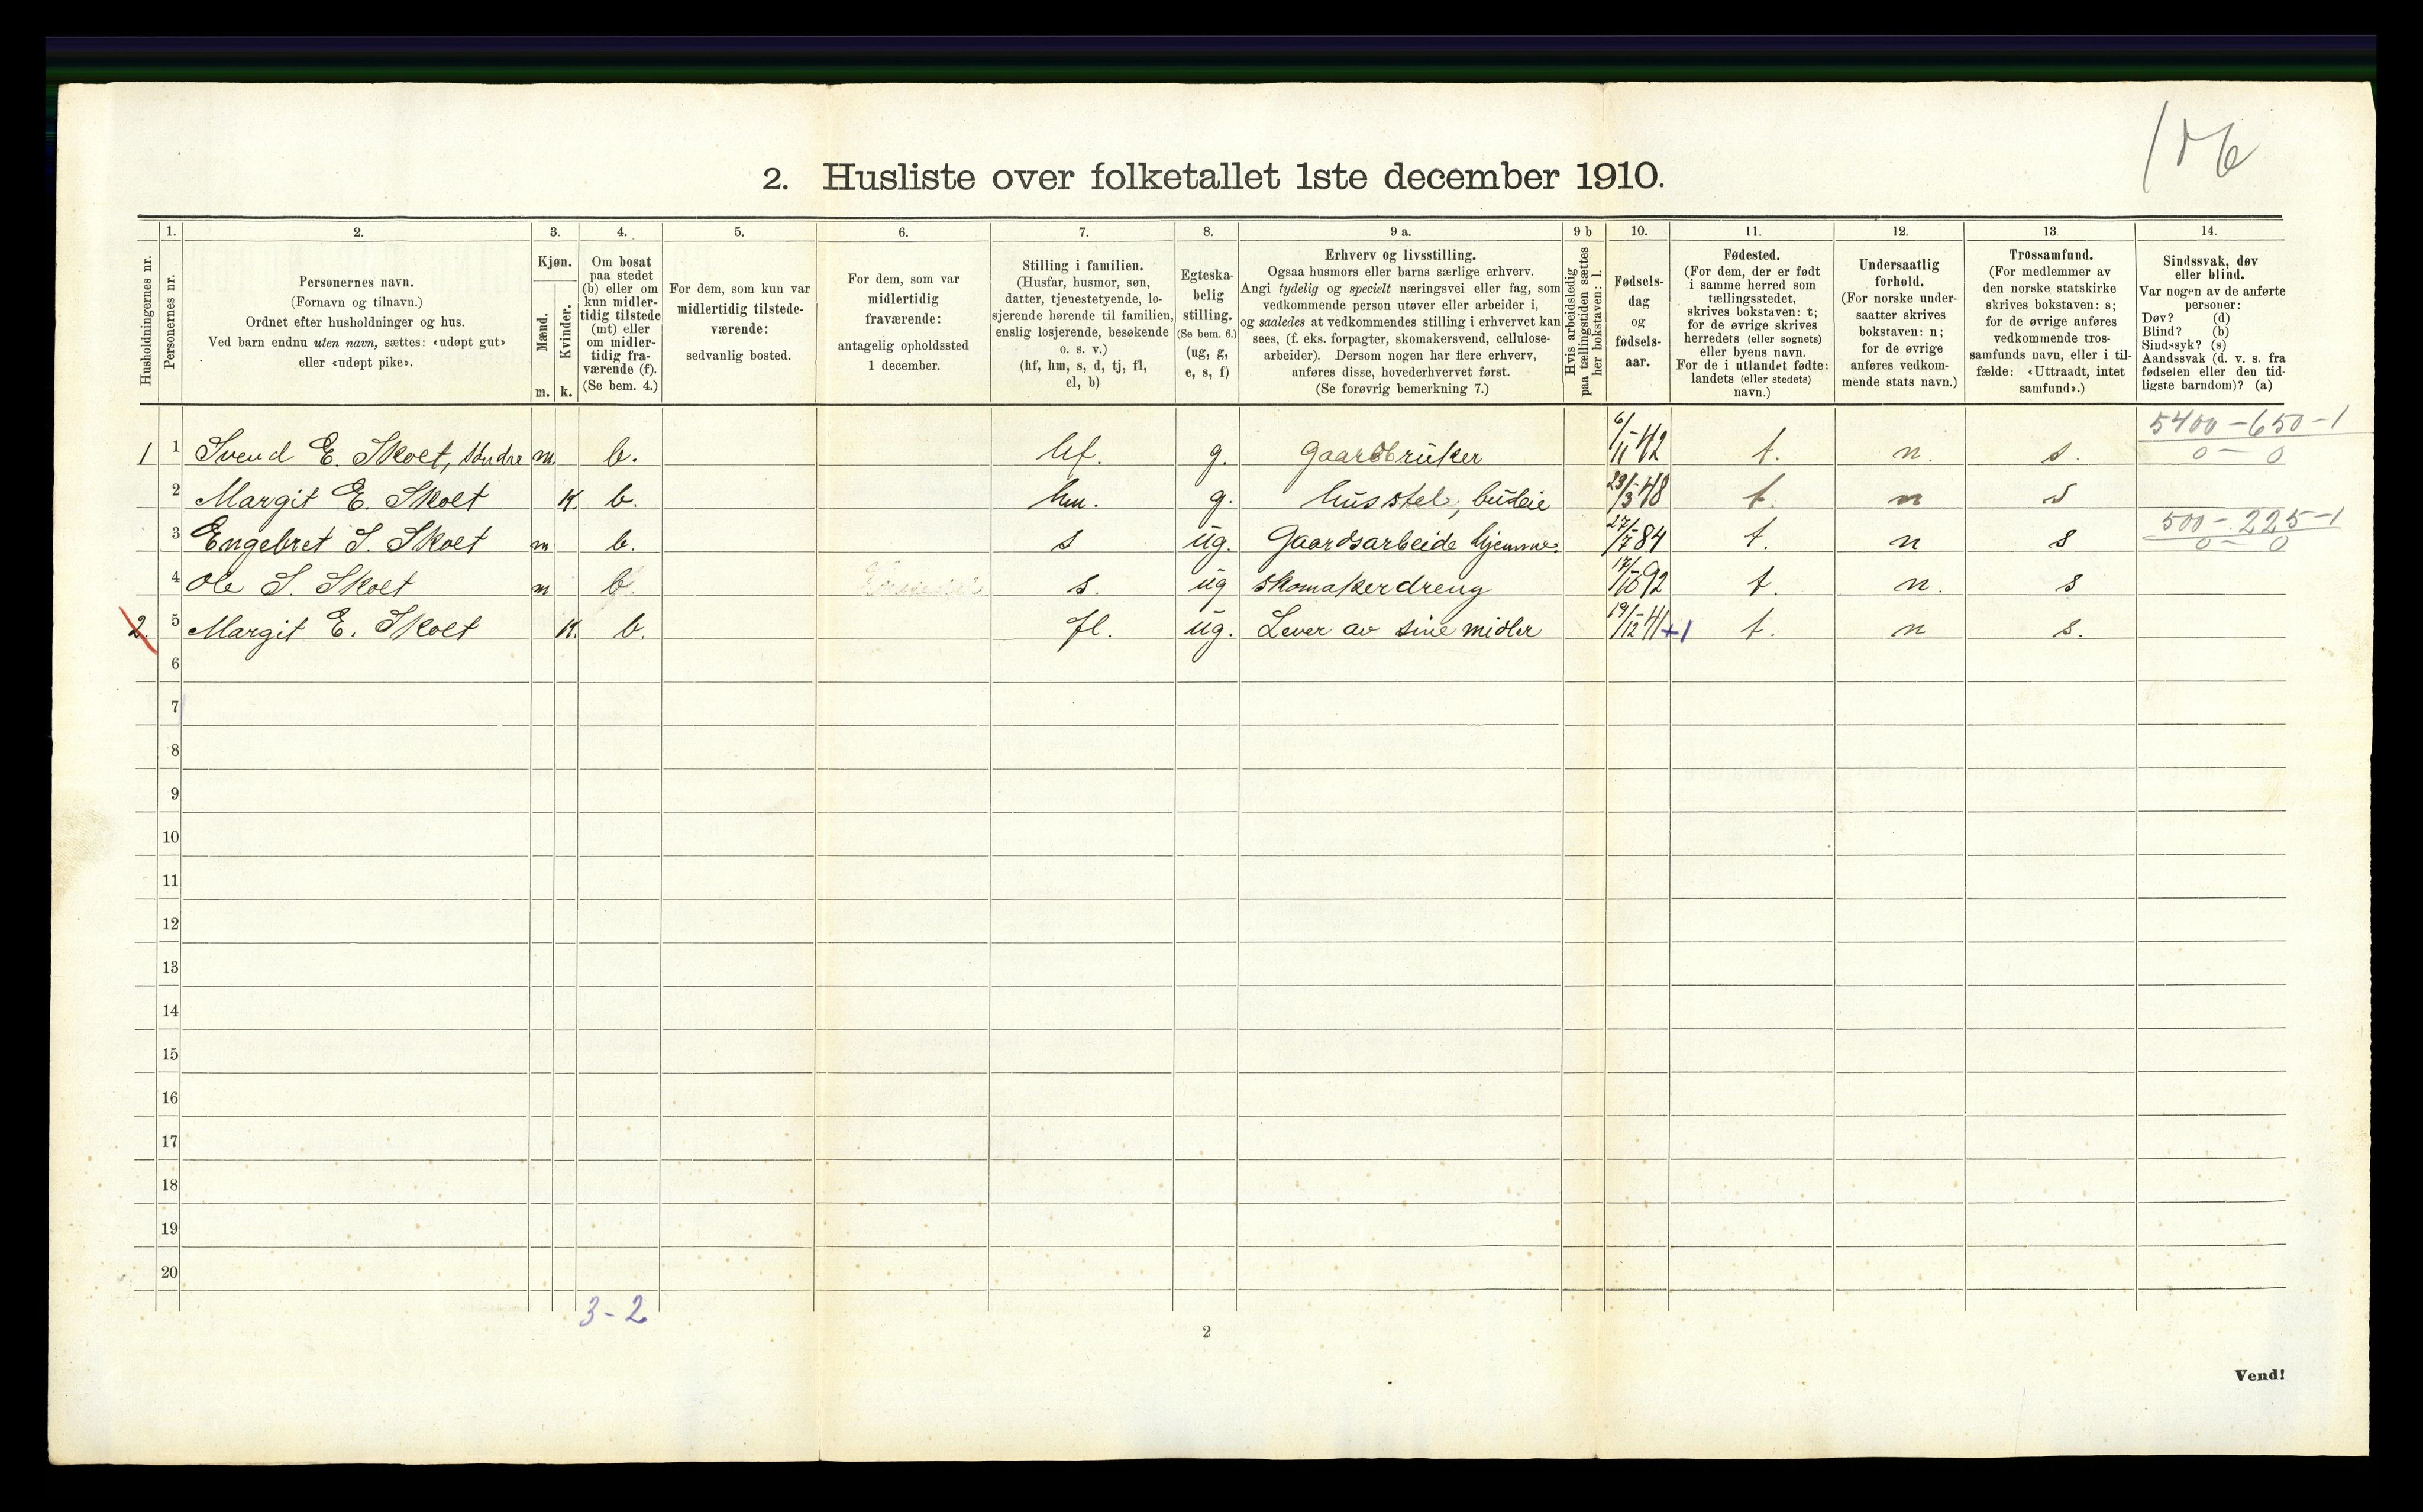 106
2. Husliste over folketallet 1ste december 1910.
Husholdningernes nr.
1.
Personernes nr.
2.
Personernes navn.
(Fornavn og tilnavn.)
Ordnet efter husholdninger og hus.
Ved barn endnu uten navn, sættes: «udøpt gut»
eller «udøpt pike».
3.
Kjøn.
Mænd.
m.
Kvinder.
k.
4.
Om bosat
paa stedet
(b) eller om
kun midler-
tidig tilstede
(mt) eller
om midler-
tidig fra-
værende (f).
(Se bem. 4.)
5.
For dem, som kun var
midlertidig tilstede-
værende:
sedvanlig bosted.
6.
For dem, som var
midlertidig
fraværende:
antagelig opholdssted
1 december.
7.
Stilling i familien.
(Husfar, husmor, søn,
datter, tjenestetyende, lo-
sjerende hørende til familien,
enslig losjerende, besøkende
o. s. v.)
(hf, hm, s, d, tj, fl,
el, b)
8.
Egteska-
belig
stilling.
(Se bem. 6.)
(ug, g,
e, s, f)
9 a.
Erhverv og livsstilling.
Ogsaa husmors eller barns særlige erhverv.
Angi tydelig og specielt næringsvei eller fag, som
vedkommende person utøver eller arbeider i,
og saaledes at vedkommendes stilling i erhvervet kan
sees, (f. eks. forpagter, skomakersvend, cellulose-
arbeider). Dersom nogen har flere erhverv,
anføres disse, hovederhvervet først.
(Se forøvrig bemerkning 7.)
9 b
Hvis arbeidsledig
paa tællingstiden sættes
her bokstaven: l.
10.
Fødsels-
dag
og
fødsels-
aar.
11.
Fødested.
(For dem, der er født
i samme herred som
tællingsstedet,
skrives bokstaven: t;
for de øvrige skrives
herredets (eller sognets)
eller byens navn.
For de i utlandet fødte:
landets (eller stedets)
navn.)
12.
Undersaatlig
forhold.
(For norske under-
saatter skrives
bokstaven: n;
for de øvrige
anføres vedkom-
mende stats navn.)
13
Trossamfund.
(For medlemmer av
den norske statskirke
skrives bokstaven: s;
for de øvrige anføres
vedkommende tros-
samfunds navn, eller i til-
fælde: «Uttraadt, intet
samfund».)
14.
Sindssvak, døv
eller blind.
Var nogen av de anførte
personer:
Døv? (d)
Blind? (b)
Sindssyk? (s)
Aandssvak (d. v. s. fra
fødselen eller den tid-
ligste barndom)? (a)
5400-650-1
1 1 Svend E. Skolt, søndre m. b. hf. g. gaardbruker 6/11-42 t. n. s. 0-0
2 Margit E. Skolt K. b. hm. g. husstel, budeie 29/3-48 t. n s
500-225-1
3 Engebret S. Skolt m b. s ug. Gaardsarbeide hjemme. 27/7-84 t. n s 0-0
4 Ole S. Skolt m b s. ug skomakerdreng 17/10 92 t. n. s
2. 5 Margit E. Skolt K. b. fl. ug. Lever av sine midler 19/12-41 +1 t. n s.
6
7
8
9
10
11
12
13
14
15
16
17
18
19
20
3-2
2
Vend!